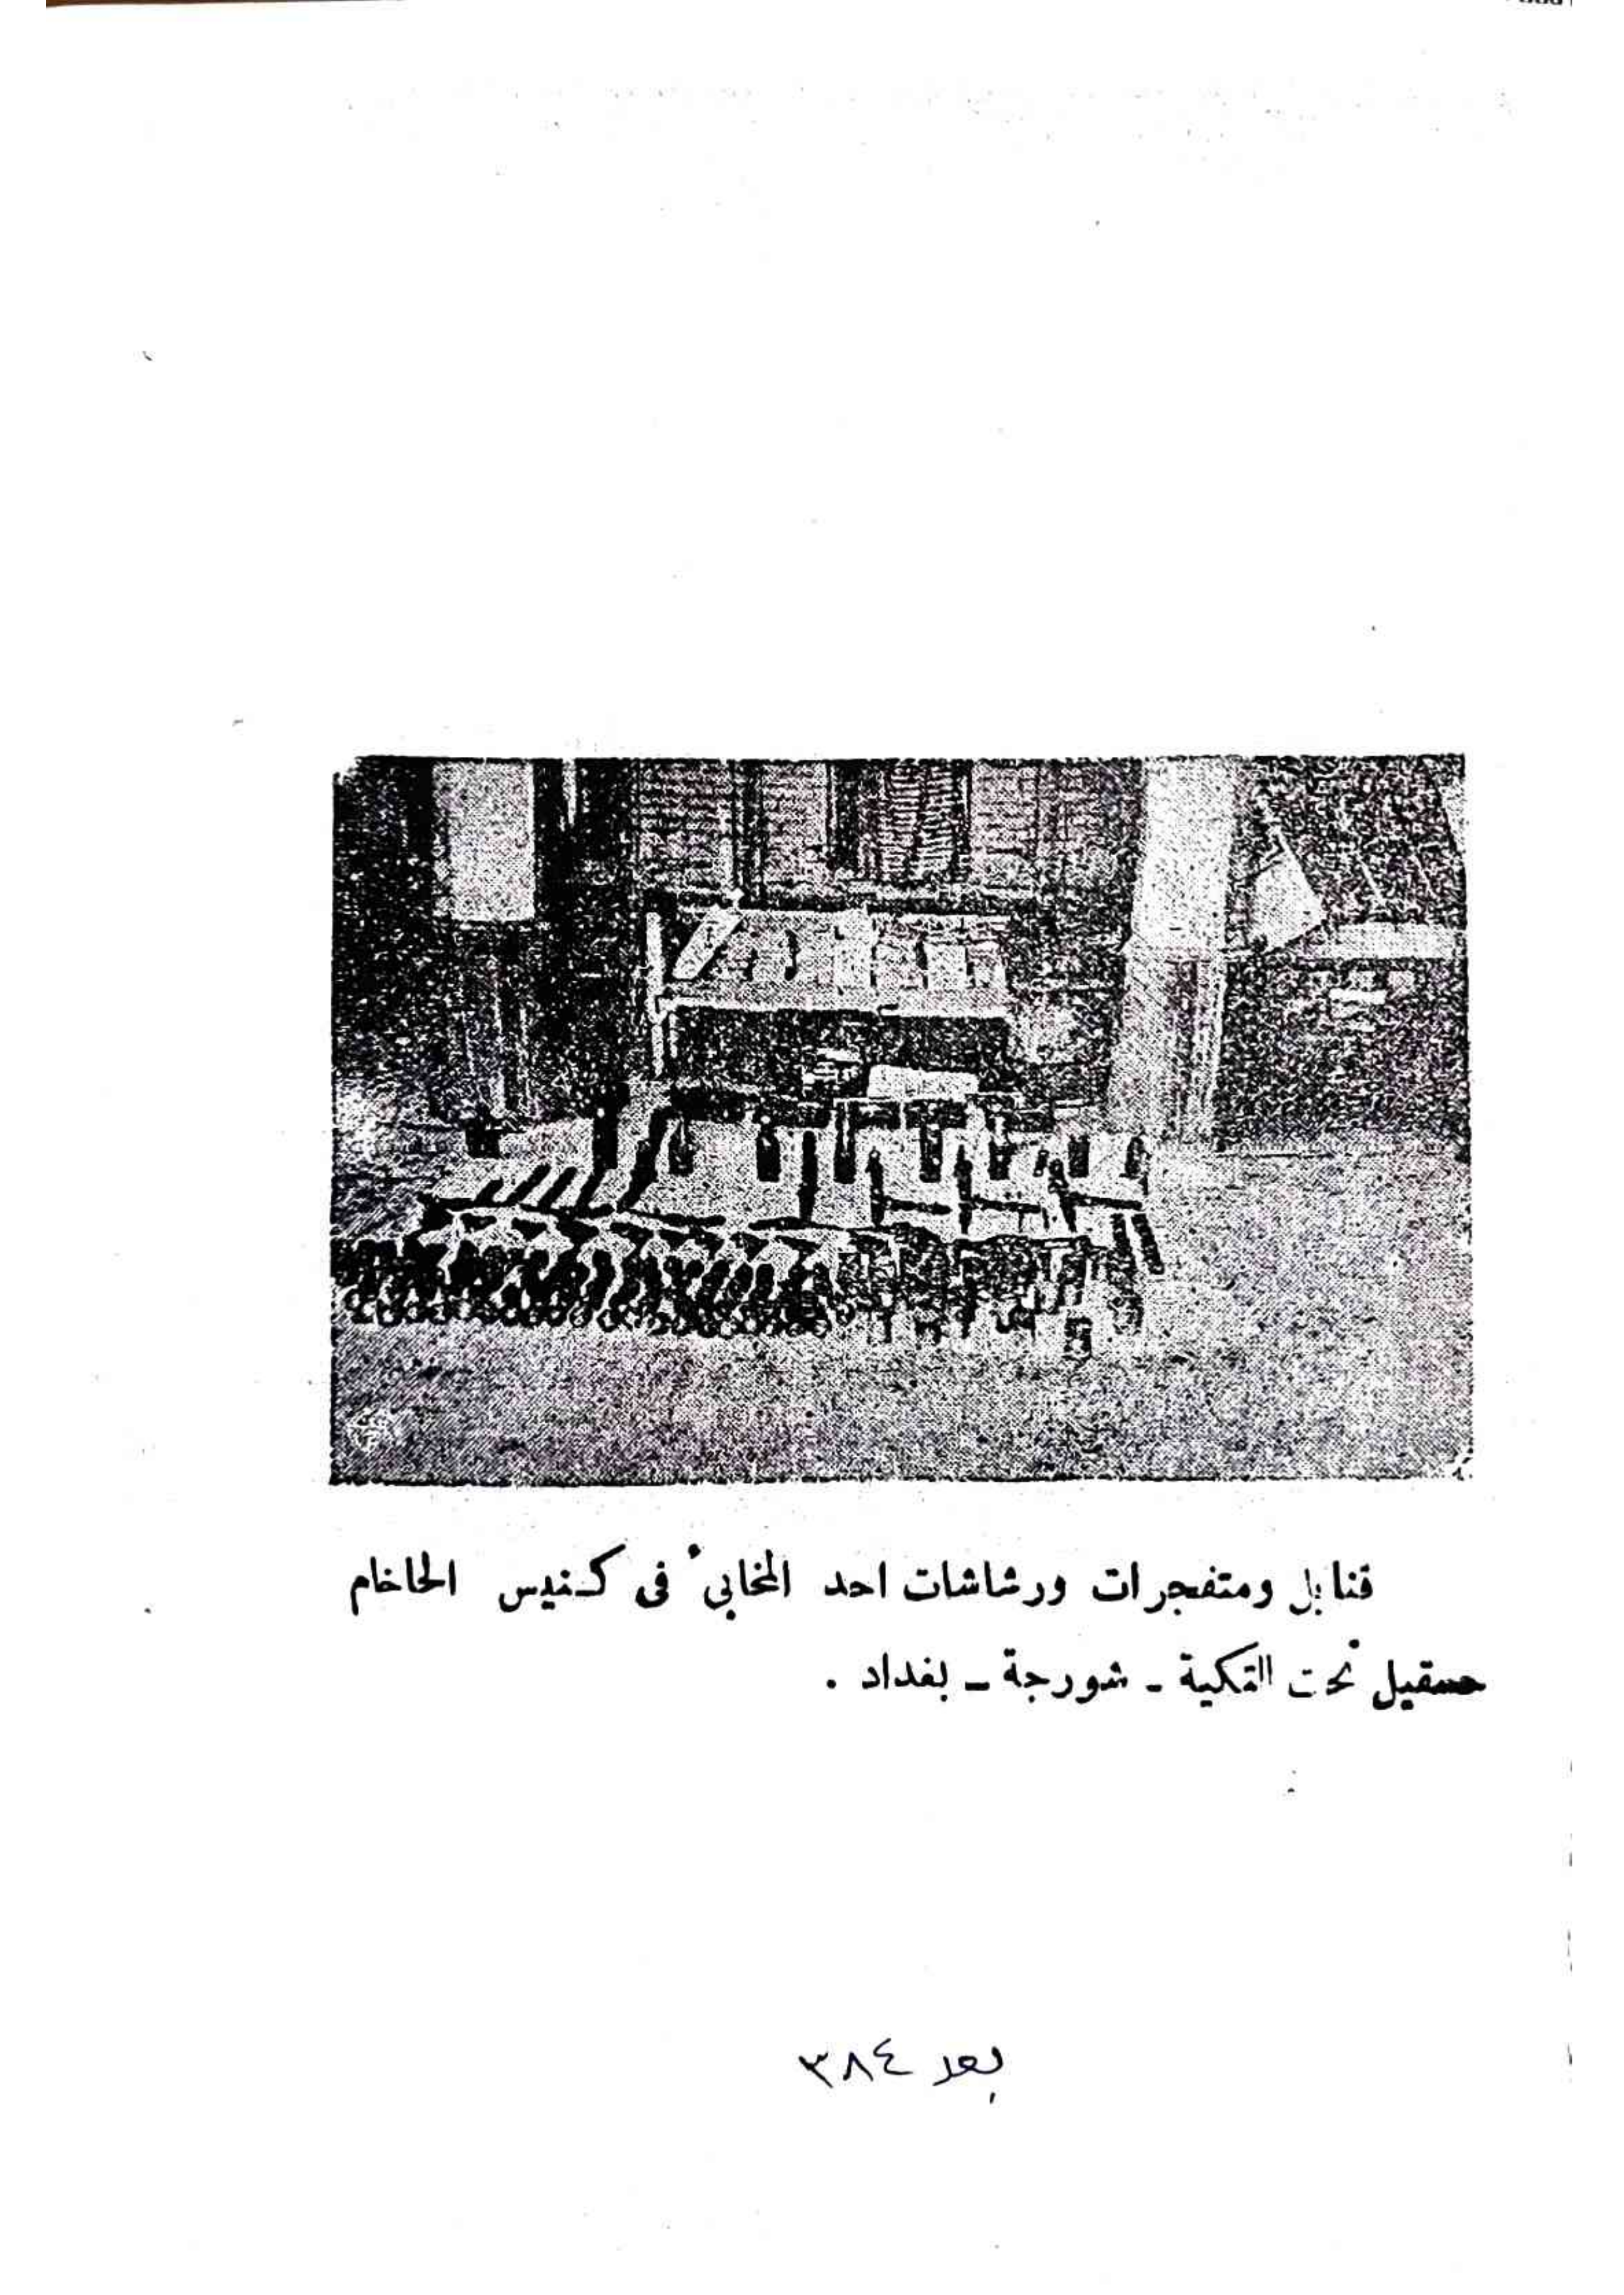 قنابل ومتفجرات ورشاشات احد المخابئ فى كنيس الحاخام
حسقيل تحت التكية - شورجة - بغداد .
بعد ٣٨٤